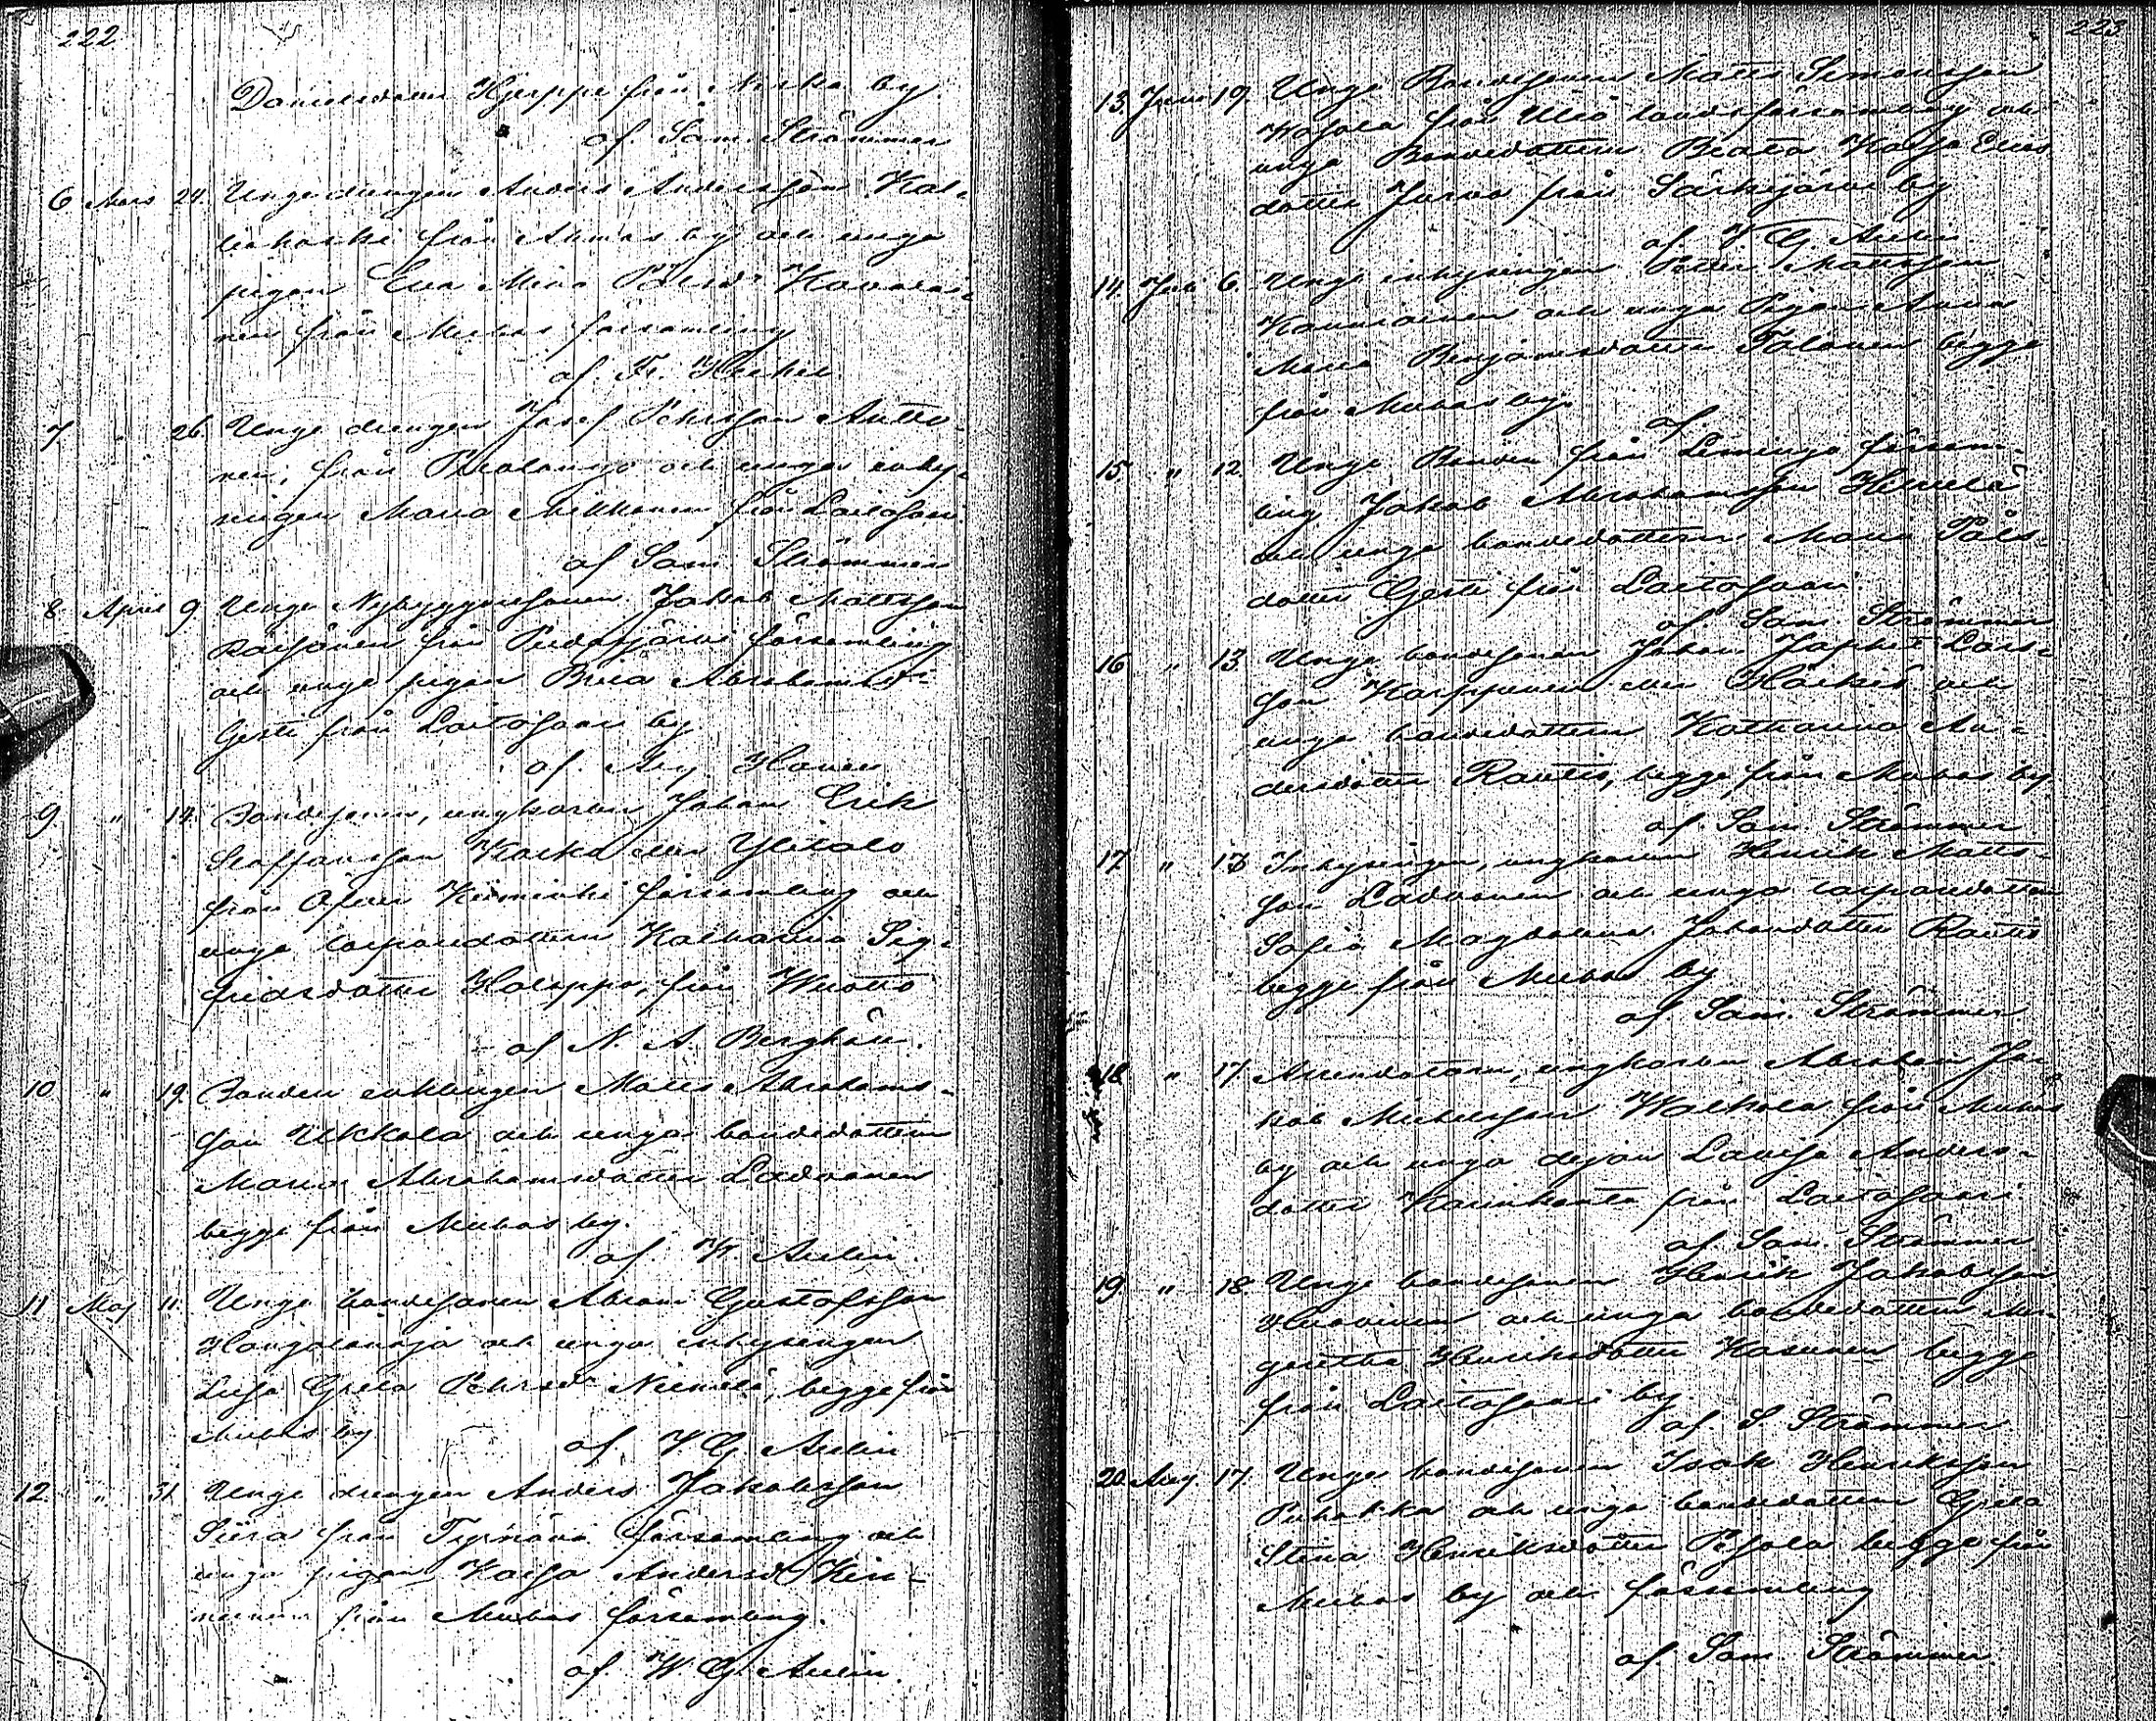 222
Danielsdotter Hjerppe från Niska by
af Sam. Strömmer
6 Mars 24. Unge drengen Anders Andersson Kal-
från Ahmas by och unga
pigan Eva Mina Pehrsdr Kovalai-
nen från Muhos församling
af Fr. Heikel
7 " 26. Unge drengen Josef Pehrsson Antto-
nen, från Puolango och unga inhy-
singen Maria Mikkonen från Laitasaari
af Sam. Strömmer
8 April 9. Unge Nybyggaresonen Jakob Mattsson
Räisänen från Pudasjärvi församling
och unga pigan Brita Abrahamsdr
Gesti från Laitasaari by
af Hanen
9 " 14. Bondesonen, ungkarlen Johan Erik
Staffansson Karka eller Ylitalo
från Öfver Kiiminki församling och
unga torparedottern Katharina Sig-
fridsdotter Holappa, från Wuotto
af N. A. Berghäll.
10 " 19. Bonden enklingen Matts Abrahams-
son Ukkola och unga bondedottern
Maria Abrahamsdotter Lodvonen
begge från Muhos by.
af W. Aulin
11 Maj 11. Unge bondesonen Abram Gustafsson
Hangaslinja och unga inhysingen
Lisa Greta Pehrsdr Niemelä, begge från
Muhos by
af W G. Aulin
12 " 31. Unge drengen Anders Jakobsson
Siira från Tyrnävä församling och
unga pigan Kaisa Andersd Kin-
nunen från Muhos församling.
af W. G. Aulin.
223
13 Juni 19. Unge Bondesonen Matts Simonsson
från Uleå landsförsamling och
unga Bondedottern Beata Kajsa Eries
dotter Jurva från Särkijärvi by
af W G. Aulin
14. Juli 6. Unge inhysingen Petter Mattsson
och unga Pigan Anna
Maria Benjamsdotter Tolonen begge
från Muhos by.
af
15 " 12. Unge Bonden från Limingo försam-
ling Jakob Abrahamsson Heikelä
och unga bondedottern Maria Påls-
dotter Gesti från Laitasaari
af Sam. Strömmer
16 " 13. Unge bondesonen Johan Japhet Lars-
son Karppinen eller och
unga bondedottern Katharina An-
dersdotter Rautio, begge från Muhos by
af Sam. Strömmer
17 " 13 Inhysingen, ungkarlen Henrik Matts-
son Lodvonen och unga torparedottern
Sofia Magdalena Johansdotter Rautio
begge från Muhos by
af Sam. Strömmer
18 " 17. Arrendatorn, ungkarlen Abraham Ja-
kob Michelsson Walkola från Muhos
by och unga dejan Lovisa Anders-
dotter från Laitasaari
af Sam. Strömmer
19. " 18. Unge bondesonen Henrik Jakobsson
Huovinen och unga bondedottern Mar-
gretha Henriksdotter Kosunen begge
från Laitasaari by.
af S Strömmer
20. Aug. 17. Unge bondesonen Isak Henriksson
Puhakka och unga bondedottern Greta
Stina Henriksdotter Pesola begge från
Muhos by och församling
af Sam. Strömmer.